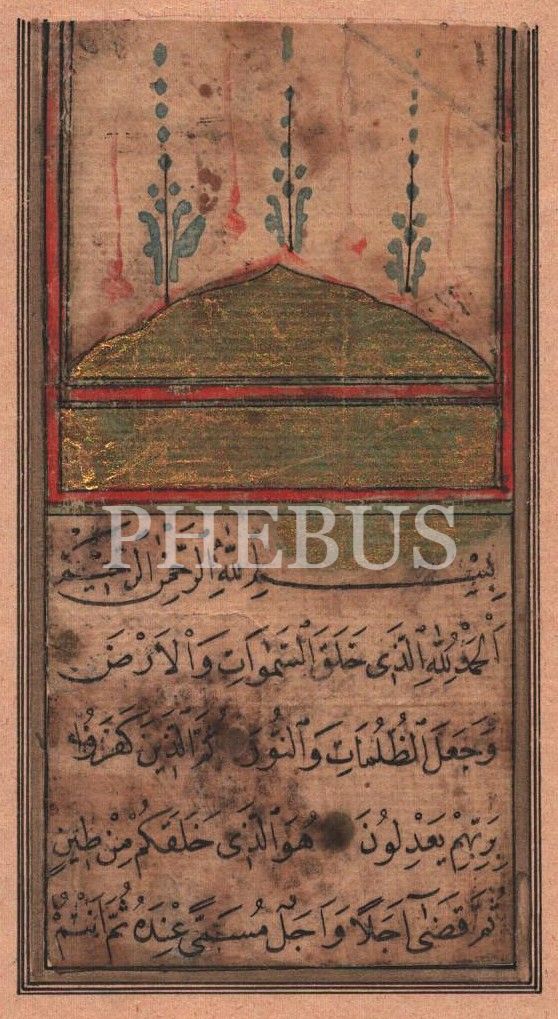 PHEBUS
بِسْمِ اللّٰهِ الرَّحْمٰنِ الرَّحِيمِ
اَلْحَمْدُ لِلّٰهِ الَّذِى خَلَقَ السَّمٰوَاتِ وَالْاَرْضَ
وَجَعَلَ الظُّلُمَاتِ وَالنُّورَ ثُمَّ الَّذِينَ كَفَرُوا
بِرَبِّهِمْ يَعْدِلُونَ هُوَ الَّذِى خَلَقَكُمْ مِنْ طِينٍ
ثُمَّ قَضٰى اَجَلًا وَاَجَلٌ مُسَمًّى عِنْدَهُ ثُمَّ اَنْتُمْ